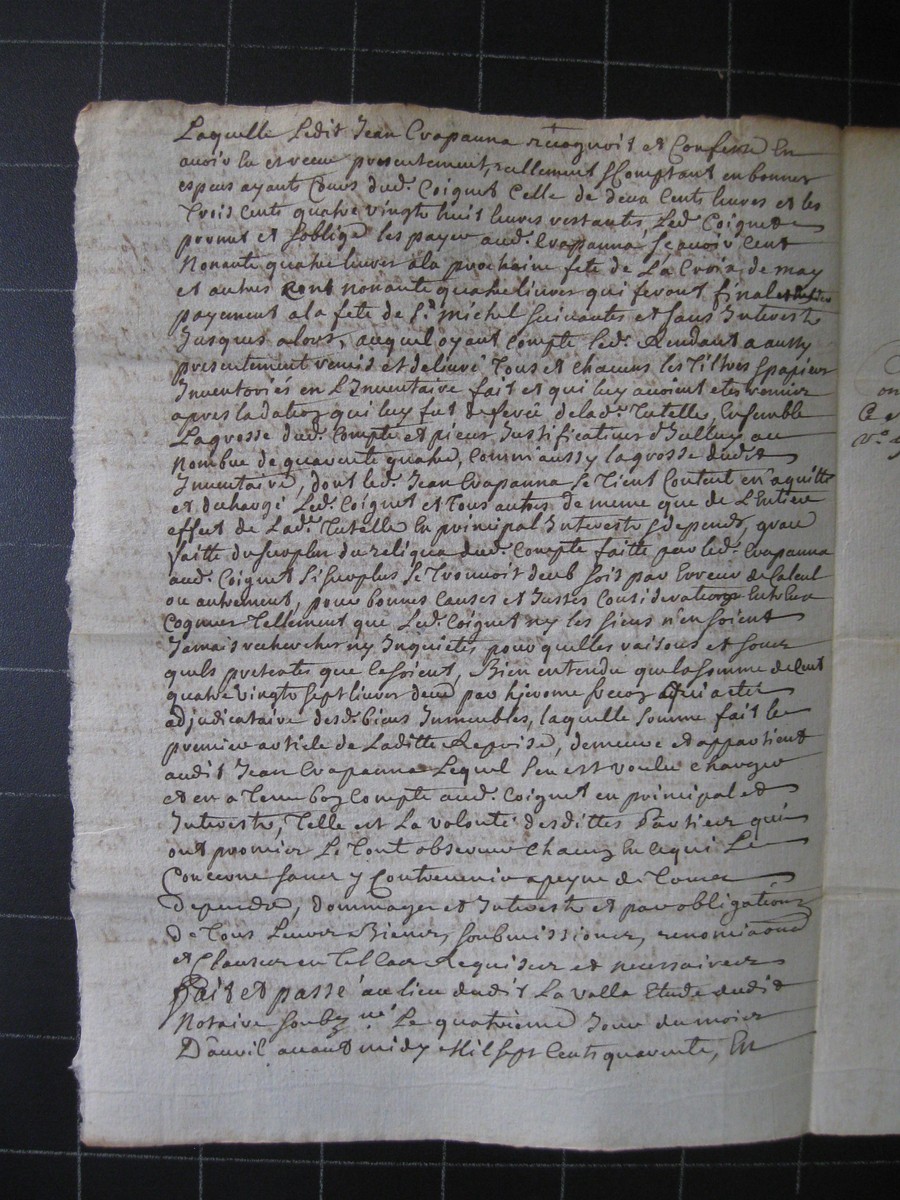 Laquelle Ledit Jean Crapanna recognoit et Confesse En
avoir Eu et receu presentement, reellement & Comptant en bonnes
especes ayants Cours dud. Coignet Celle de deux Cents livres et les
Trois Cents quatre vingts huit livres restantes, Led. Coignet
promet et soblige les payer aud. Crapanna Scavoir Cent
Nonante quatre livres a la prochaine fete de La Croix de may
et autres Cent nonante quatre livres qui feront final et dernier
payement a la fete de St. michel Suivantes et sans Interests
Jusques alors, auquel oyant Compte led. Rendant a aussy
presentement remis et delivré Tous et Chacuns les Tiltres & papiers
Inventoriés en L'Inventaire fait et qui luy avoient etes remis
apres la daõn qui luy fut deferée de lad. Tutelle, Ensemble
La grosse dud. Compte et pieces Justificatives d'Icelluy au
Nombre de quarente quatre, Comm'aussy la grosse dudit
Inventaire, dont led. Jean Crapanna se Tient Content en aquitte
et decharge Led. Coignet et Tous autres de meme que de L'Entiere
effet de Lad. Tutelle En principal Interests & depends, grace
faitte du surplus du reliqua dud. Compte faitte par led. Crapanna
aud. Coignet Si surplus se Trouvoit deub soit par Erreur de Calcul
ou autrement, pour bonnes Causes et Justes Considerations Entre Eux
Cogneues Tellement que Led. Coignet ny les siens n'en soient
Jamais recherches ny Inquietés pour quelles raisons et sous
quels pretextes que Ce soient, Bien entendu que la somme de Cent
quatre vingts sept livres deue par hierome
adjudicataire desd. biens Immeubles, laquelle somme fait le
premier article de Laditte Reprise, demeure et appartient
audit Jean Crapanna Lequel s'en est voulu Charger
et en a Tenu bon Compte aud. Coignet en principal et
Interests, Telle est La volonté desdittes Parties qui
ont promises Le Tout observer Chacun En Ce qui Le
Concerne sans y Contrevenir a peyne de Tous
Depends, dommages et Interests et par obligations
De Tous Leurs Biens, soubmissions, renonciaõns
et Clauses en Tel Cas Requises et necessaires
fait et passé au lieu dudit La valla Etude dudit
Notaire Soubznê. Le quatrieme Jour du mois
D'avril avant midy Mil sept Cents quarente, En